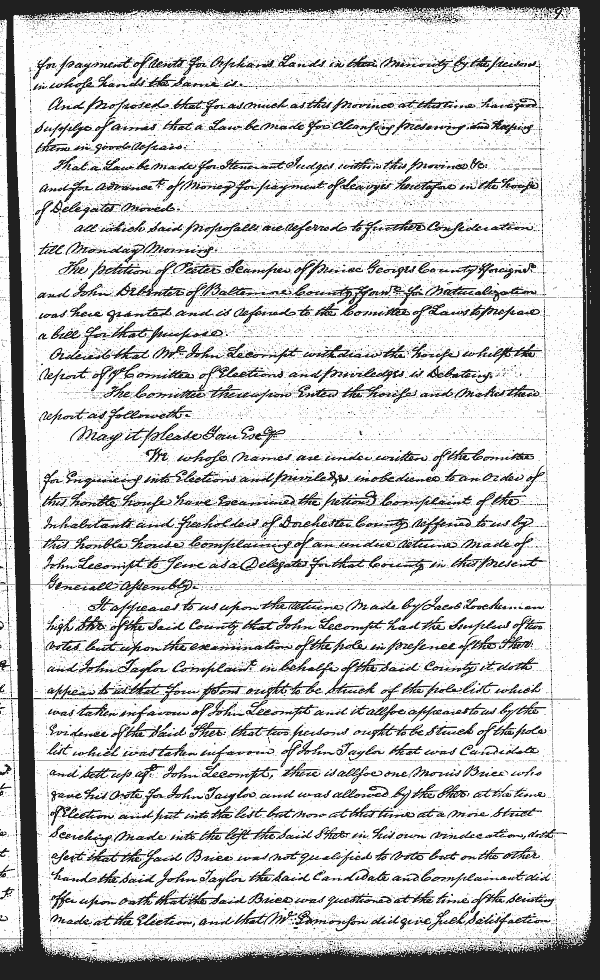 9
for payment of Rents for Orphans Lands in their Minority by the persons
in whose hands the same is.
And Proposed that for as much as this Province at this time have good
Supplye of armes that a Law be made for Cleansing preserving and keeping
them in good repair.
That a Law be made for Itenerant Judges within this Province &c
and for advancet of Money for payment of Leavyes heretofore in the house
of Delegates moved.
all which said proposalls are referred to further Consideration
till Monday Morning.
The petition of Peeter Scamper of Prince Georges County
and John Debinter of Baltemore County for Naturalization
was here granted and is referred to the Comittee of Laws to prepare
a bill for that purpose.
Ordered that Mr. John Lecompt withdraw the house whilst the
report of ye Comittee of Elections and priviledges is Debating.
The Comittee thereupon Enter the house and makes their
report as followeth.
May it please Your
We whose names are under written of the Comittee
for Enquireing into Elections and priviledges in obedience to an Order of
this honble house have Examined the petion & Complaint of the
Inhabitants and freeholders of Dorchester County reffered to us by
this honble house Complaining of an undue returne made of
John Lecompt to Serve as a Delegate for that County in this present
Generall Assembly.
It appeares to us upon the returne made by Jacob Loockerman
high Sher. of the Said County that John Lecompt had the Surplus of two
votes but upon the examination of the pole in presence of the Sher.
and John Taylor Complaint. in behalfe of the Said County it doth
appear to us that four psons ought to be struck of the pole list which
was taken in favour of John Lecompt and it allsoe appeares to us by the
Evidence of the Said Sher that two persons ought to be Struck of the pole
list which was taken in favour of John Taylor that was Candidate
and sett up agt. John Lecompt, there is allsoe one Morris Brice who
gave his vote for John Taylor and was allowed by the Sher at the time
of Election and put into the list but now at this time at a more Strict
Serching made into the list the Said Sher in his own vindecation, doth
that the Said Brice was not qualified to vote but on the other
hand the Said John Taylor the Said Candidate and Complainant did
offer upon oath that the Said Brice was questioned at the time of the Scrutiny
made at the Election, and that Mr. did give Such Satisfaction